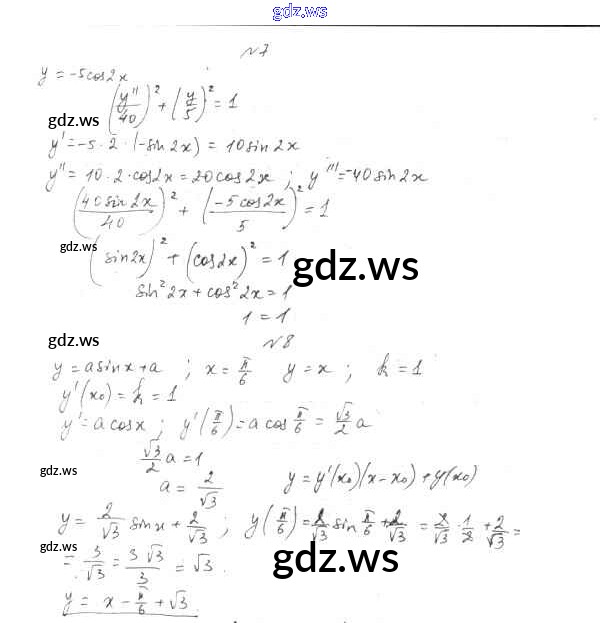 gdz.ws
№7
y = -5cos2x
(y''/40)² + (y/5)² = 1
gdz.ws
y' = -5 · 2 · (-sin 2x) = 10 sin 2x
y'' = 10 · 2 · cos2x = 20 cos 2x ; y''' = -40 sin 2x
(40 sin 2x/40)² + (-5 cos 2x/5)² = 1
gdz.ws
(sin 2x)² + (cos 2x)² = 1
gdz.ws
sin² 2x + cos² 2x = 1
1 = 1
gdz.ws
№8
y = a sin x + a ; x = π/6 y = x ; k = 1
y'(x₀) = k = 1
y' = a cos x ; y'(π/6) = a cos π/6 = √3/2 a
√3/2 a = 1
gdz.ws
a = 2/√3 y = y'(x₀)(x - x₀) + y(x₀)
y = 2/√3 sin x + 2/√3 ; y(π/6) = 2/√3 sin π/6 + 2/√3 = 2/√3 · 1/2 + 2/√3 =
gdz.ws
gdz.ws
= 3/√3 = 3√3/3 = √3.
y = x - π/6 + √3.
gdz.ws